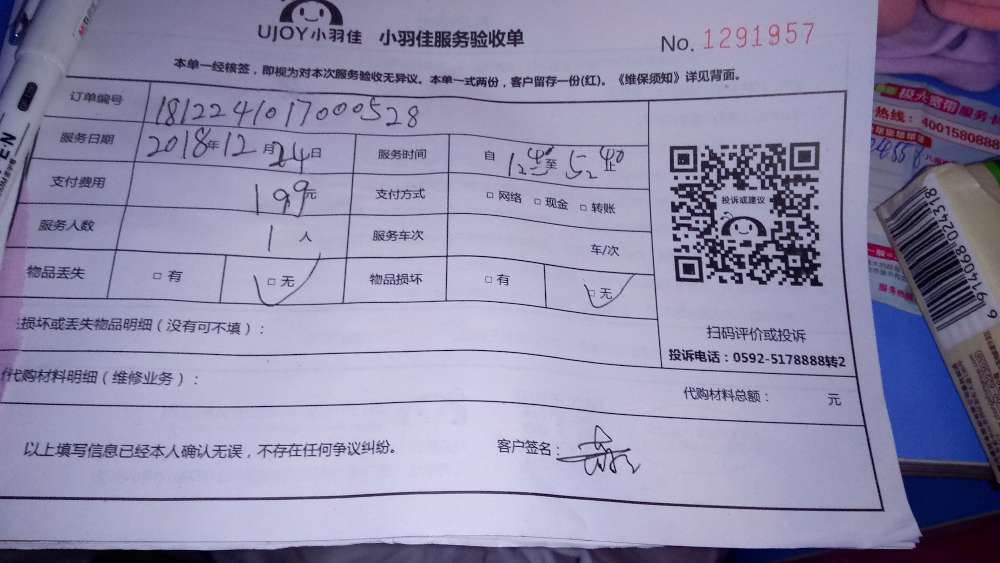 UJOY小羽佳 小羽佳服务验收单 No. 1291957
本单一经核签，即视为对本次服务验收无异议。本单一式两份，客户留存一份(红)。《维保须知》详见背面。
订单编号 1812241017000528
服务日期 2018年12月24日 服务时间 自 12 至 52 止
支付费用 199元 支付方式 □ 网络 □ 现金 □ 转账
服务人数 1 人 服务车次 车/次
物品丢失 □ 有 □ 无 物品损坏 □ 有 □ 无
投诉或建议
损坏或丢失物品明细（没有可不填）：
扫码评价或投诉
投诉电话：0592-5178888转2
代购材料明细（维修业务）：
代购材料总额： 元
以上填写信息已经本人确认无误，不存在任何争议纠纷。
客户签名：
极大宽带服务
热线：4001580888
6 911068 024318